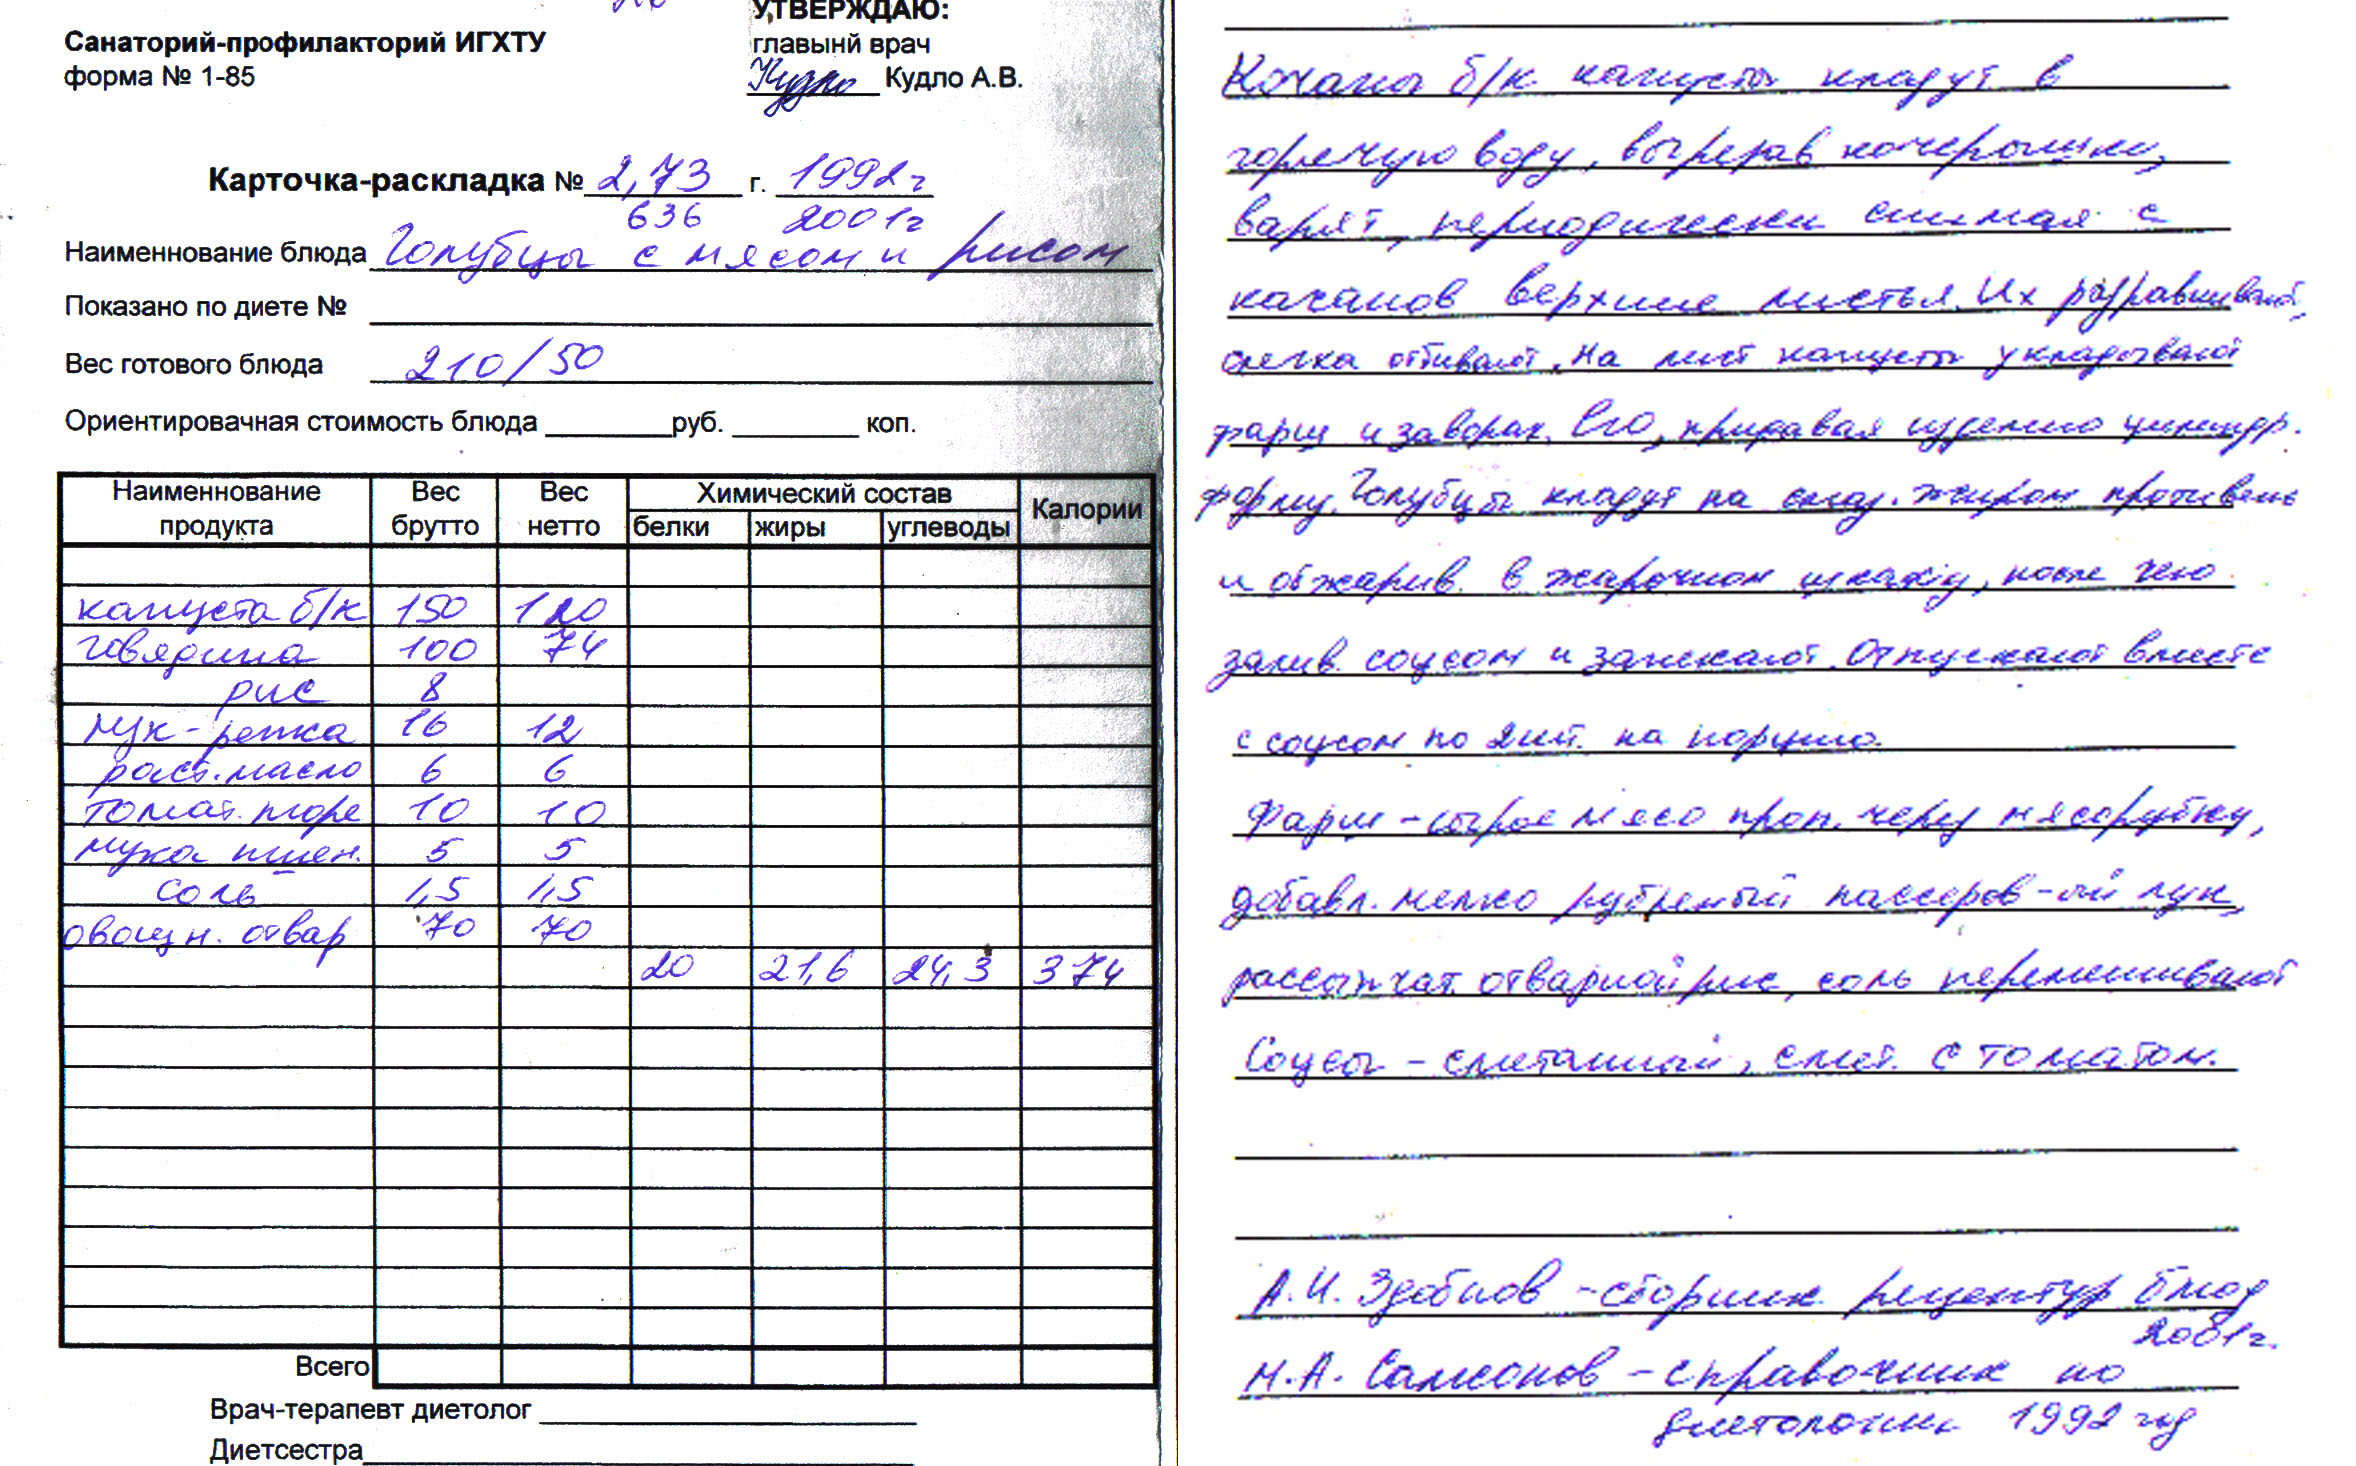 УТВЕРЖДАЮ:
Санаторий-профилакторий ИГХТУ
главынй врач
форма № 1-85
Кудло Кудло А.В.
Карточка-раскладка № 2,73 г. 1992г
636 2001г
Наименнование блюда Голубцы с мясом и рисом
Показано по диете №
Вес готового блюда 210/50
Ориентировачная стоимость блюда ________руб. ________ коп.
Наименнование продукта Вес брутто Вес нетто Химический состав Калории
белки жиры углеводы
капуста б/к 150 120
говядина 100 74
рис 8
лук-репка 16 12
раст. масло 6 6
томат. пюре 10 10
мука пшен. 5 5
соль 1,5 1,5
овощн. отвар 70 70
20 21,6 24,3 374
Всего
Врач-терапевт диетолог
Диетсестра
Кочаны б/к капусты кладут в
горячую воду, вырезав кочерыжки,
варят, периодически снимая с
качанов верхние листья. Их разравнивают,
слегка отбивают. На лист капусты укладывают
фарш и заворач. его, придавая изделию цилиндр.
форму. Голубцы кладут на смаз. жиром противень
и обжарив. в жарочном шкафу, после чего
залив. соусом и запекают. Отпускают вместе
с соусом по 2 шт. на порцию.
Фарш - сырое мясо проп. через мясорубку,
добавл. мелко рубленый пассеров-ый лук,
рассыпчат. отварной рис, соль перемешивают
Соусы - сметанный, смет. с томатом.
А.И. Здобнов - сборник рецептур блюд
2001г.
М.А. Самсонов - справочник по
диетологии 1992 год